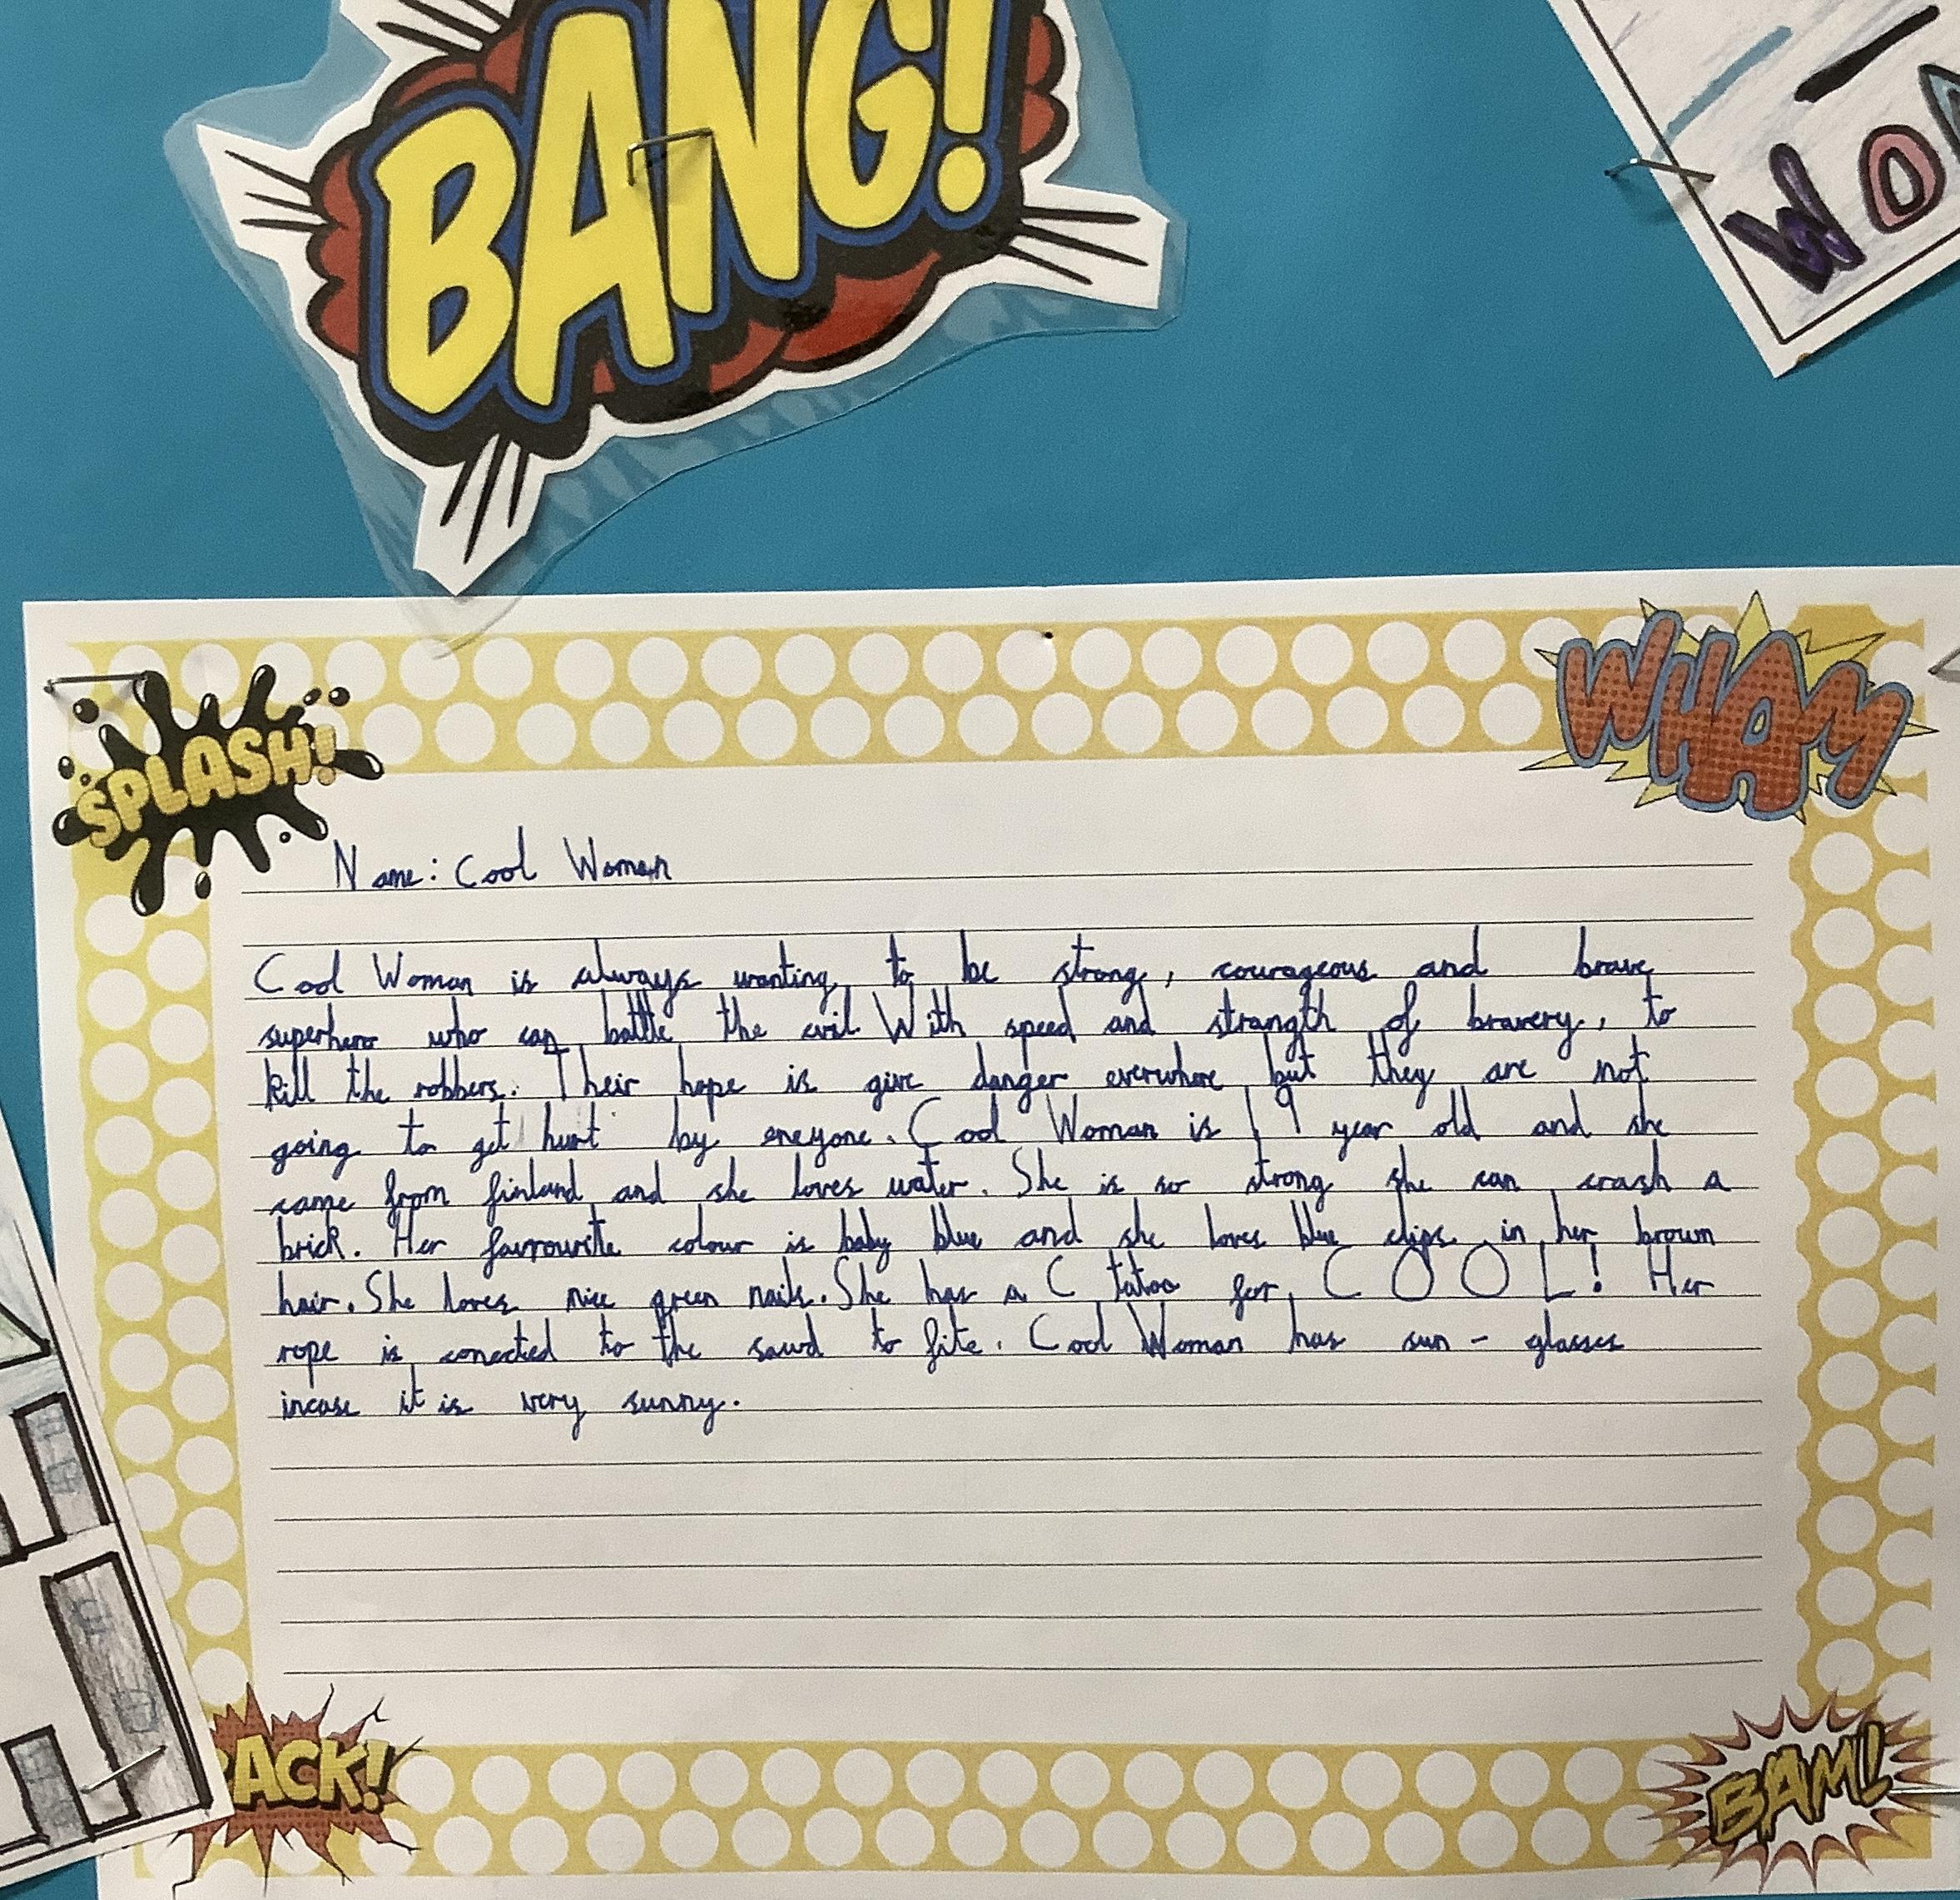 BANG!
WO
SPLASH!
WHAM
Name: Cool Woman
Cool Woman is always wanting to be strong, courageous and brave
superhero who can battle the evil With speed and strangth of bravery, to
kill the robbers. Their hope is give danger everwhere but they are not
going to get hurt by eneyone. Cool Woman is 19 year old and she
came from finland and she loves water. She is so strong she can crash a
brick. Her favrourite colour is baby blue and she loves blue clips in her brown
hair. She loves nice green nails. She has a C tatoo for C O O L! Her
rope is conected to the sowd to fite. Cool Woman has sun - glasses
incase it is very sunny.
ACK!
BAM!